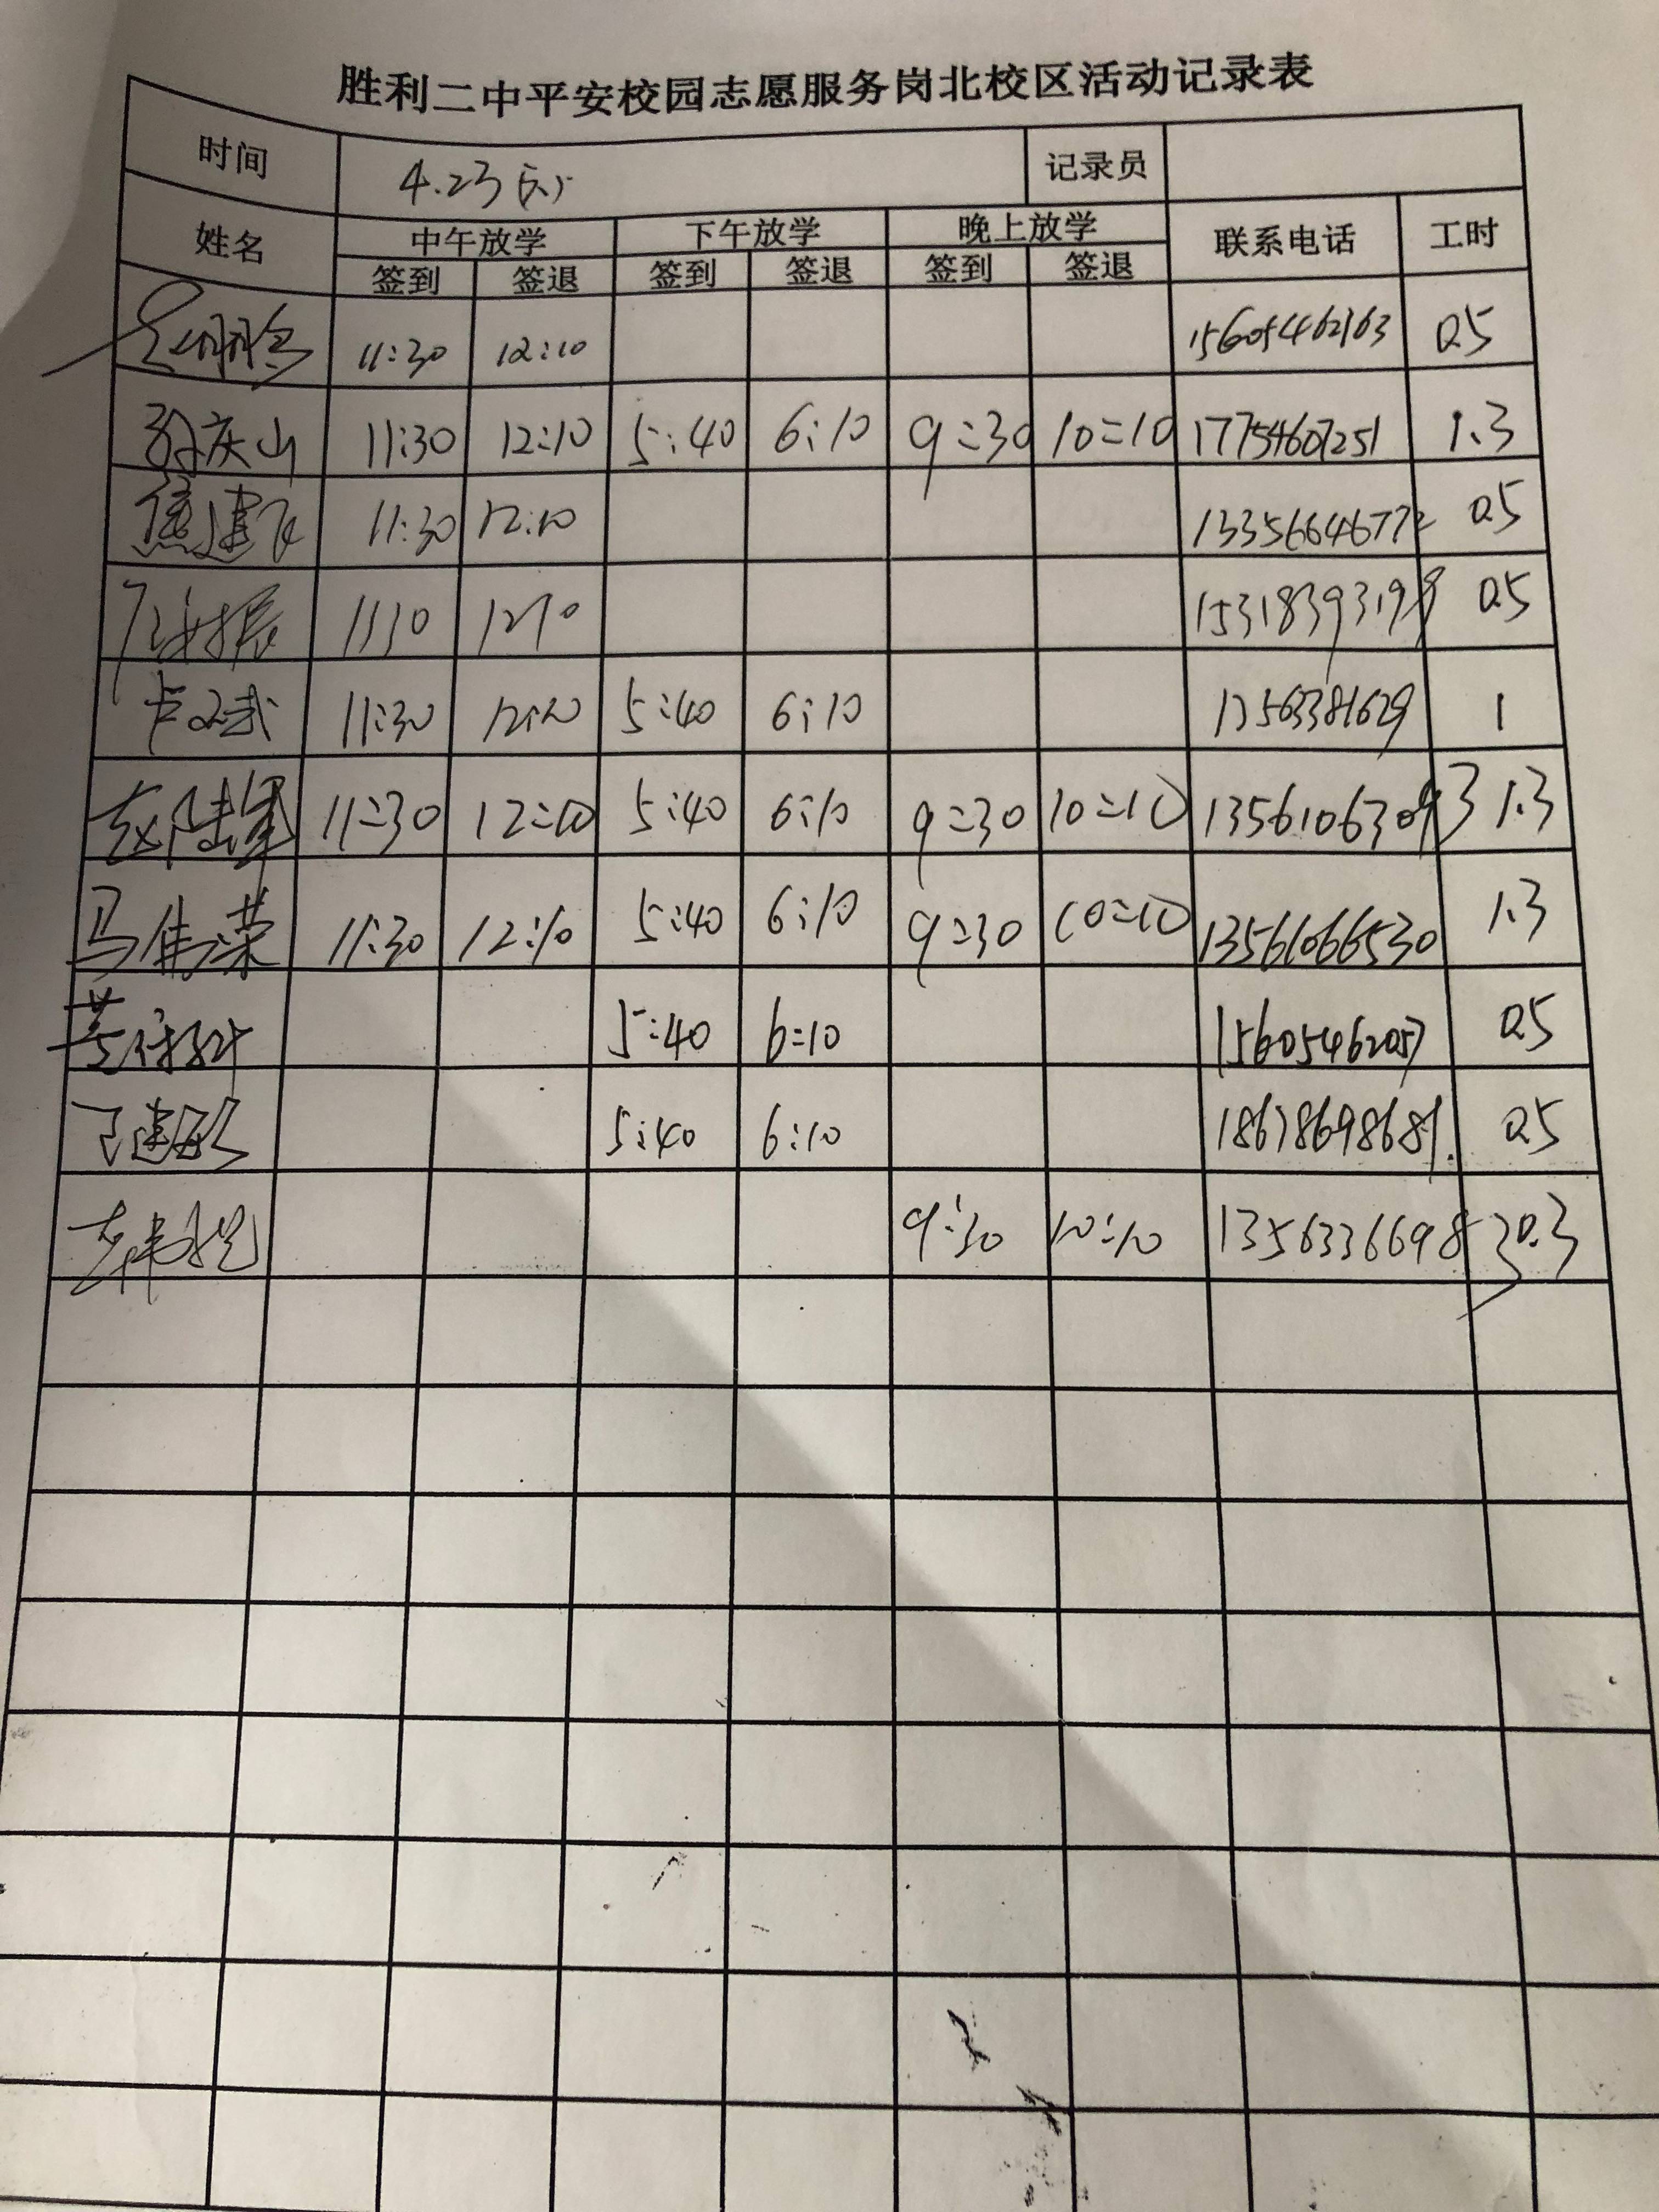 胜利二中平安校园志愿服务岗北校区活动记录表
时间 4.23 记录员
姓名 中午放学 下午放学 晚上放学 联系电话 工时
签到 签退 签到 签退 签到 签退
11:30 12:10 15605462163 0.5
孙庆山 11:30 12:10 5:40 6:10 9:30 10:10 17754607251 1.3
焦建飞 11:30 12:10 13356646772 0.5
12:10 15318393198 0.5
卢文武 11:30 12:10 5:40 6:10 1
赵陆军 11:30 12:10 5:40 6:10 9:30 10:10 13561063093 1.3
马伟荣 11:30 12:10 5:40 6:10 9:30 10:10 13561066530 1.3
5:40 6:10 15605462057 0.5
5:40 6:10 18678698681 0.5
9:30 10:10 13563366983 0.3